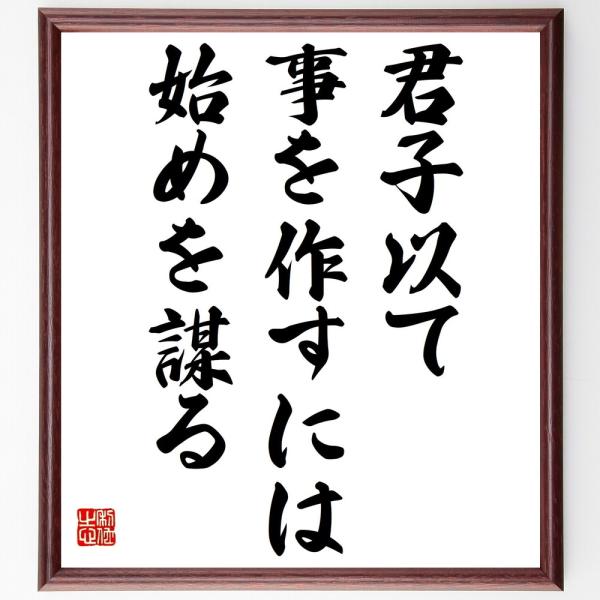 君子以て
事を作すには
始めを謀る